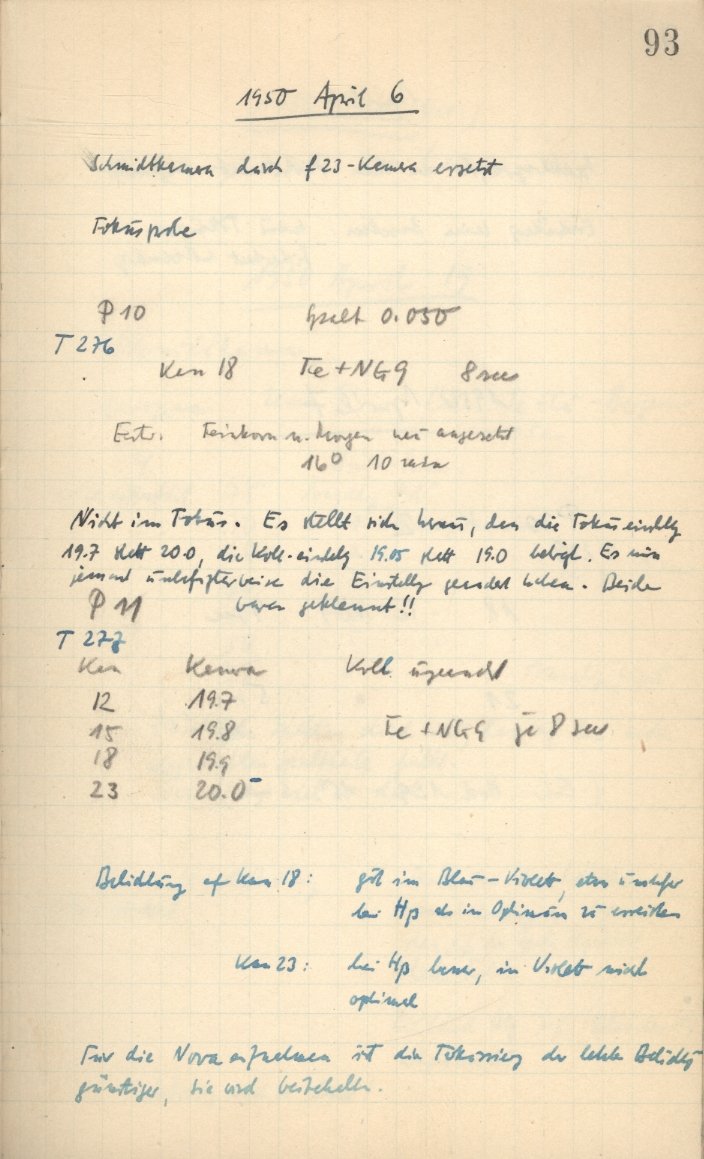 93
1950 April 6
Schmidtkamera durch f23-Kamera ersetzt
Fokusprobe
P 10 Spalt 0.050
T 276
Ken 18 Fe + NG9 8 sec
Entw. Feinkorn u. Morgen neu angesetzt
16° 10 min
Nicht im Fokus. Es stellt sich heraus, dass die Fokuseinstellg
19.7 statt 20.0, die Koll.-einstellg 19.05 statt 19.0 beträgt. Es muss
jemand unbefugterweise die Einstellg geändert haben. Beide
P 11 waren geklemmt!!
T 277
Ken Kamera Koll. ungeändert
12 19.7
15 19.8 Fe + NG9 je 8 sec
18 19.9
23 20.0
Belichtung auf Ken 18: gut im Blau-Violett, etwas unschärfer
bei Hβ als im Optimum zu erreichen
Ken 23: bei Hβ besser, im Violett nicht
optimal
Für die Novaaufnahmen ist die Fokussierung der letzten Belichtg
günstiger, sie wird beibehalten.